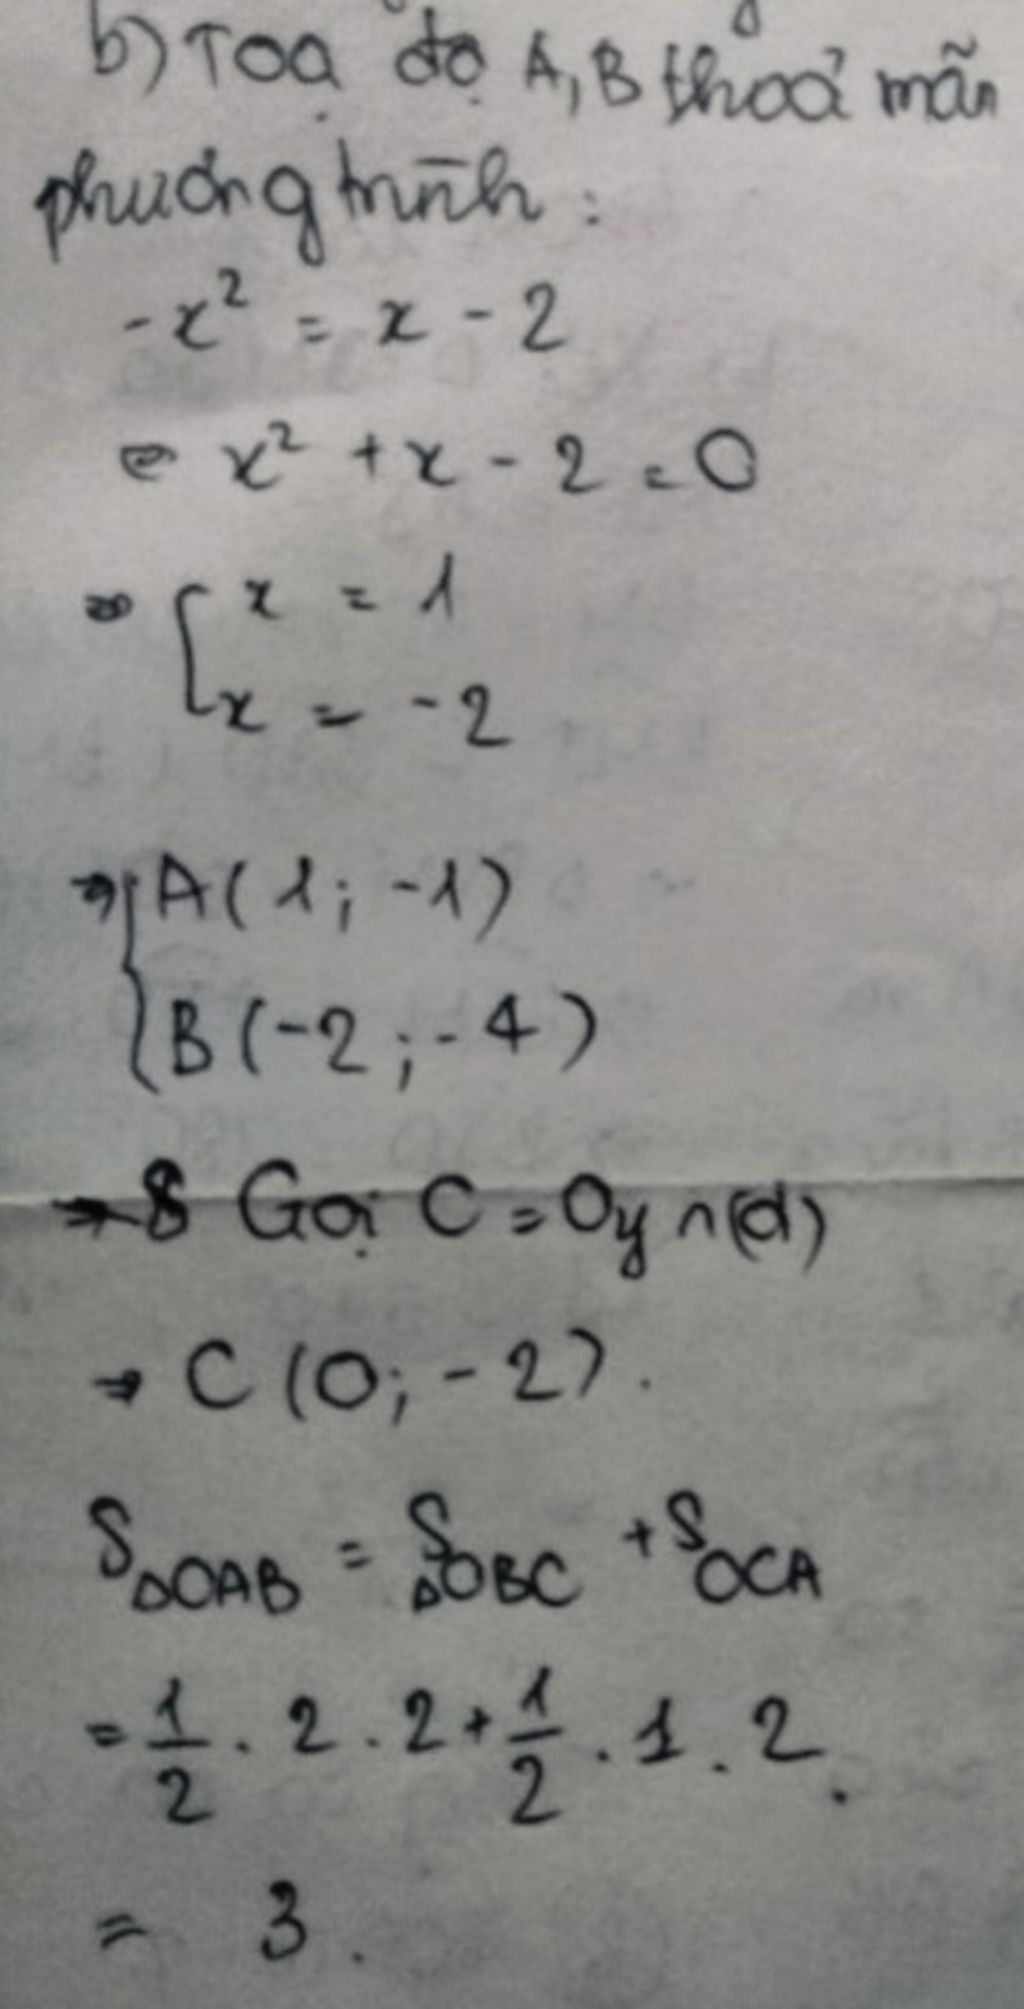 b) Toạ độ A, B thoả mãn
phương trình :
-x² = x - 2
⇔ x² + x - 2 = 0
⇔ [ x = 1
x = -2
⇒ { A(1; -1)
B(-2; -4)
Gọi C = Oy ∩ (d)
→ C(0; -2).
S△OAB = S△OBC + SOCA
= 1/2 . 2 . 2 + 1/2 . 1 . 2.
= 3.